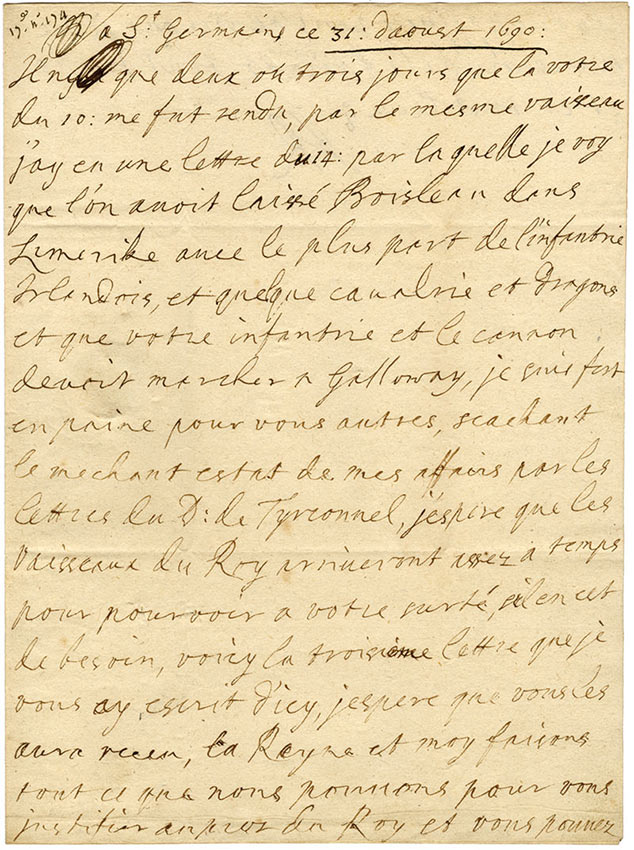 a S.t Germains ce 31: daoust 1690:
Il ny a que deux ou trois jours que la votre
du 10: me fut rendu, par le mesme vaisseau
j'ay eu une lettre du 14: par laquelle je voy
que l'on auoit laissé Boisleau dans
Limerike auec le plus part de l'infantrie
Irlandois, et quelque caualrie et dragons
et que votre infantrie et le cannon
deuoit marcher a Galloway, je suis fort
en paine pour vous autres, scachant
le mechant estat de mes affairs par les
lettres du D: de Tyrconnel, j'espire que les
Vaisseaux du Roy arriueront assez a temps
pour pourvoir a votre surté, sil en est
de besoin, voicy la troisieme lettre que je
vous ay escrit d'icy, jespere que vous les
aura receu, la Rayne et moy faisons
tout ce que nous pouuons pour vous
justifier aupres du Roy et vous pouuez